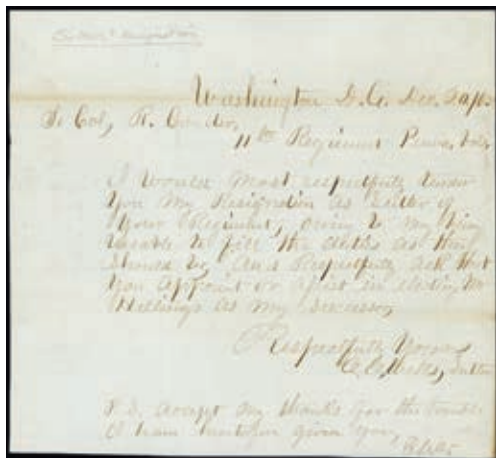 Washington D.C. Dec. 20/62
To Col, R. Coulter,
11th Regiment Penna. Vols,
I would Most respectfully tender
You My Resignation as Sutler of
Your Regiment, owing to my being
unable to fill the duties as they
should be, And Respectfully ask that
You appoint or assist in electing Mr
Hellings as My Successor,
Respectfully Yours
Sutler
P.S. accept my thanks for the trouble
I have given you,